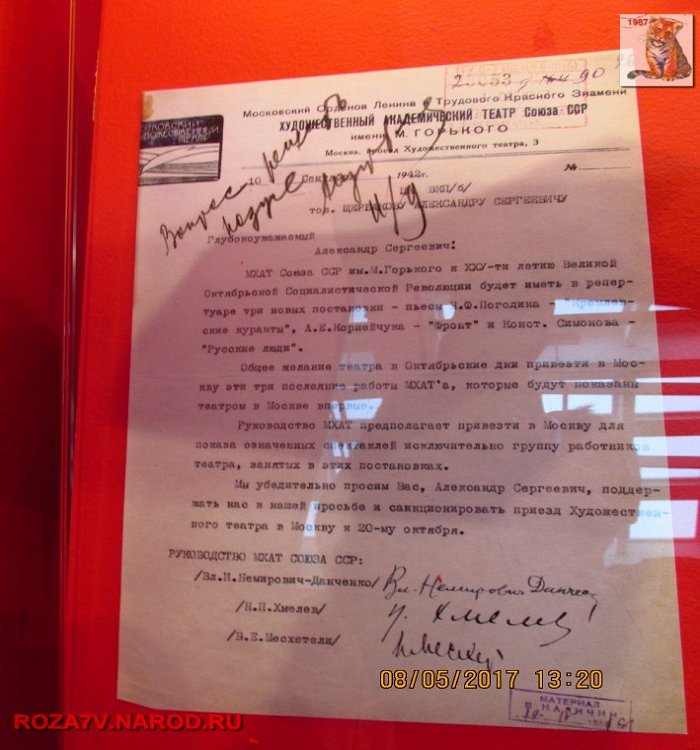 1987
Московский Орденов Ленина и Трудового Красного Знамени
ХУДОЖЕСТВЕННЫЙ АКАДЕМИЧЕСКИЙ ТЕАТР Союза ССР
имени М. ГОРЬКОГО
Москва, проезд Художественного театра, 3
10 1942г. №
ЦК ВКП/б/
тов. ЩЕРБАКОВУ АЛЕКСАНДРУ СЕРГЕЕВИЧУ
Вопрос решен
Глубокоуважаемый
Александр Сергеевич!
МХАТ Союза ССР им.М.Горького к ХХУ-ти летию Великой
Октябрьской Социалистической Революции будет иметь в репер-
туаре три новых постановки - пьесы Н.Ф.Погодина - "Кремлев-
ские куранты", А.Е.Корнейчука - "Фронт" и Конст. Симонова -
"Русские люди".
Общее желание театра в Октябрьские дни привезти в Мос-
кву эти три последние работы МХАТ'а, которые будут показаны
театром в Москве впервые.
Руководство МХАТ предполагает привезти в Москву для
показа означенных спектаклей исключительно группу работников
театра, занятых в этих постановках.
Мы убедительно просим Вас, Александр Сергеевич, поддер-
жать нас в нашей просьбе и санкционировать приезд Художествен-
ного театра в Москву к 20-му октября.
РУКОВОДСТВО МХАТ СОЮЗА ССР:
/Вл.И.Немирович-Данченко/ Вл. Немирович Данченко
/Н.П.Хмелев/ Хмелев
/В.Е.Месхетели/
08/05/2017 13:20
МАТЕРИАЛ
ROZA7V.NAROD.RU